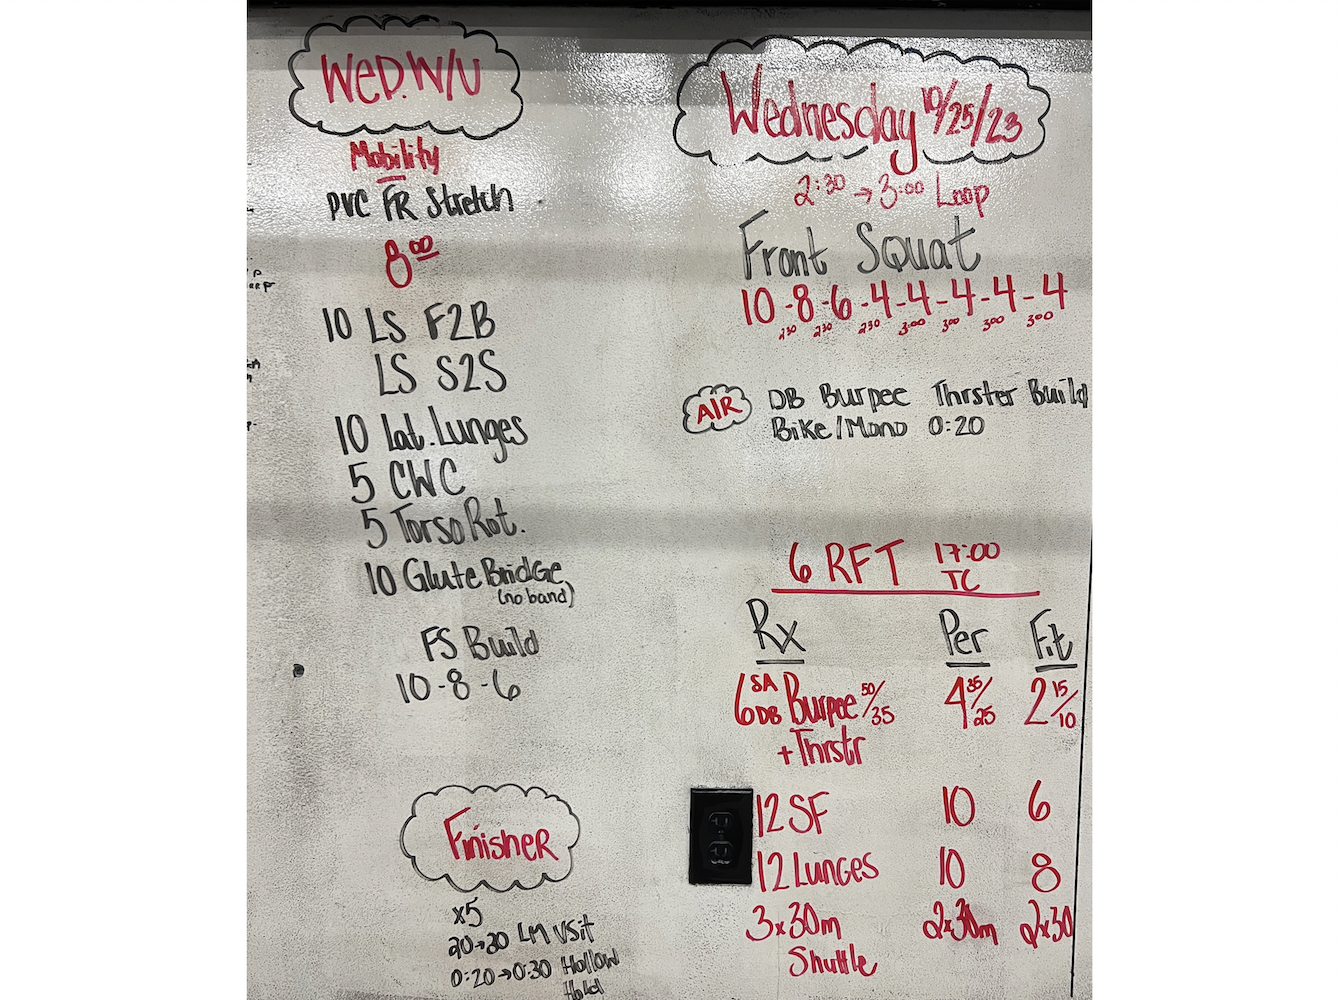 Wed. W/U
Mobility
PVC FR Stretch
8:00
10 LS F2B
LS S2S
10 Lat. Lunges
5 CWC
5 Torso Rot.
10 Glute Bridge
(no band)
FS Build
10-8-6
Finisher
x5
20→30 LM VSit
0:20→0:30 Hollow
Hold
Wednesday 10/25/23
2:30 → 3:00 Loop
Front Squat
10-8-6-4-4-4-4-4
230 230 230 3:00 300 300 300
AIR
DB Burpee Thrster Build
Bike/Mono 0:20
6 RFT 17:00
TC
Rx Per Fit
6 SA DB Burpee 50/35 4 35/25 2 15/10
+Thrstr
12 SF 10 6
12 Lunges 10 8
3x30m 2x30m 2x30
Shuttle